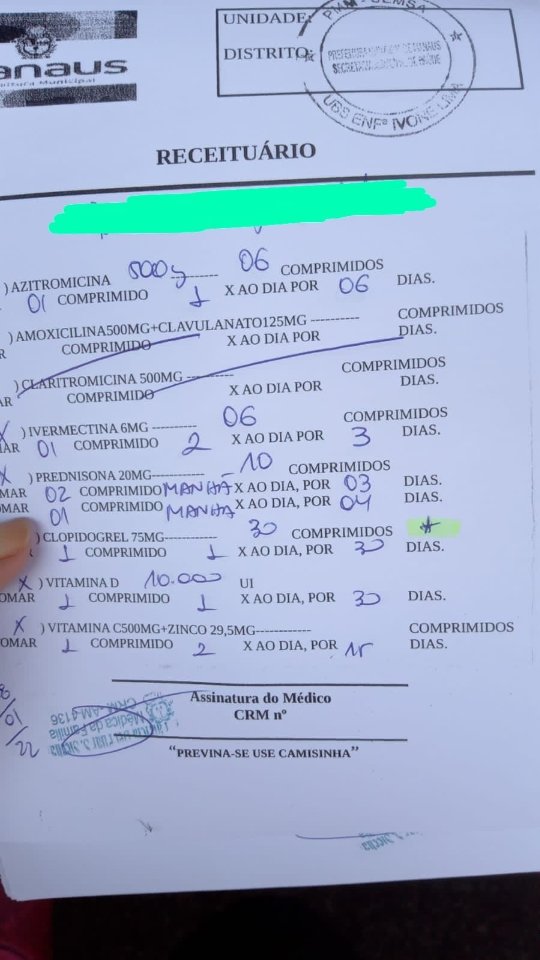 anaus
UNIDADE:
DISTRITO:
PREFEITURA MUNICIPAL DE MANAUS
UBS ENFª IVONE LIMA
RECEITUÁRIO
) AZITROMICINA 500g ---------- 06 COMPRIMIDOS
01 COMPRIMIDO 1 X AO DIA POR 06 DIAS.
) AMOXICILINA500MG+CLAVULANATO125MG ---------- COMPRIMIDOS
AR COMPRIMIDO X AO DIA POR DIAS.
) CLARITROMICINA 500MG ---------- COMPRIMIDOS
AR COMPRIMIDO X AO DIA POR DIAS.
X ) IVERMECTINA 6MG ---------- 06 COMPRIMIDOS
MAR 01 COMPRIMIDO 2 X AO DIA POR 3 DIAS.
X ) PREDNISONA 20MG------------ 10 COMPRIMIDOS
MAR 02 COMPRIMIDO MANHÃ X AO DIA, POR 03 DIAS.
OMAR 01 COMPRIMIDO MANHÃ X AO DIA, POR 04 DIAS.
) CLOPIDOGREL 75MG------------ 30 COMPRIMIDOS
1 COMPRIMIDO 1 X AO DIA, POR 30 DIAS.
X ) VITAMINA D 10.000 UI
OMAR 1 COMPRIMIDO 1 X AO DIA, POR 30 DIAS.
X ) VITAMINA C500MG+ZINCO 29,5MG------------ COMPRIMIDOS
OMAR 1 COMPRIMIDO 2 X AO DIA, POR 15 DIAS.
/01
/22
Médica da Família
CRM-AM
Assinatura do Médico
CRM nº
“PREVINA-SE USE CAMISINHA”